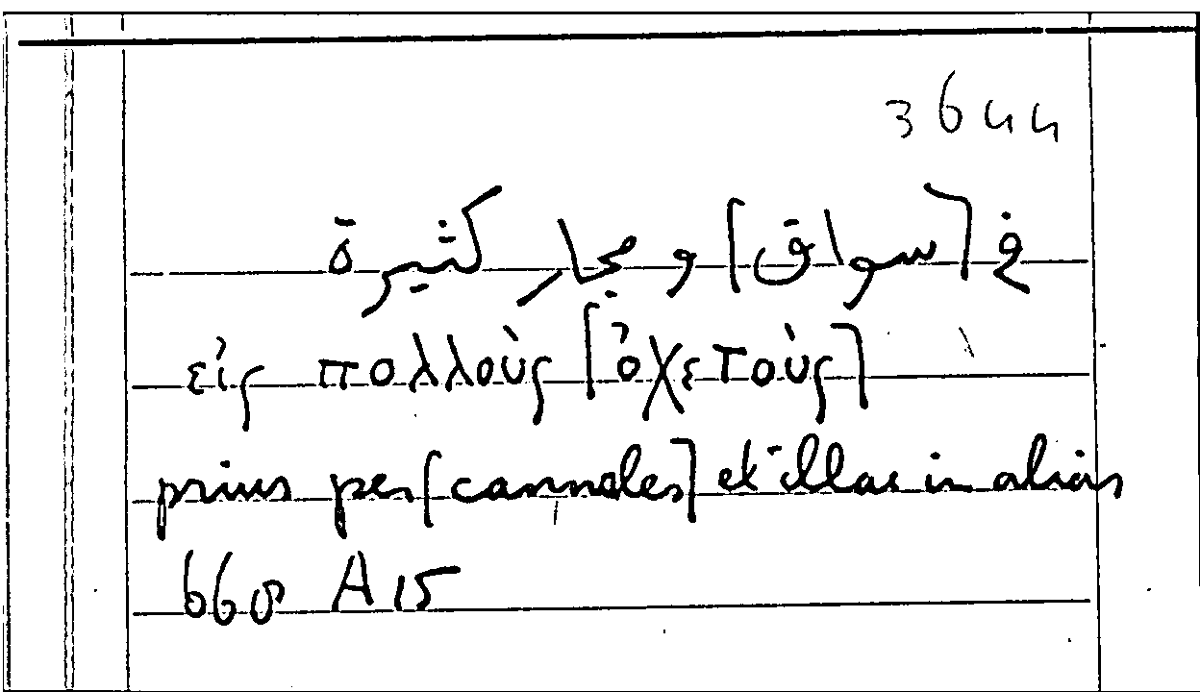 3644
في [سواق] و مجار كثيرة
εἰς πολλοὺς [ὀχετοὺς]
prius per [cannales] et illas in alias
668 A 15